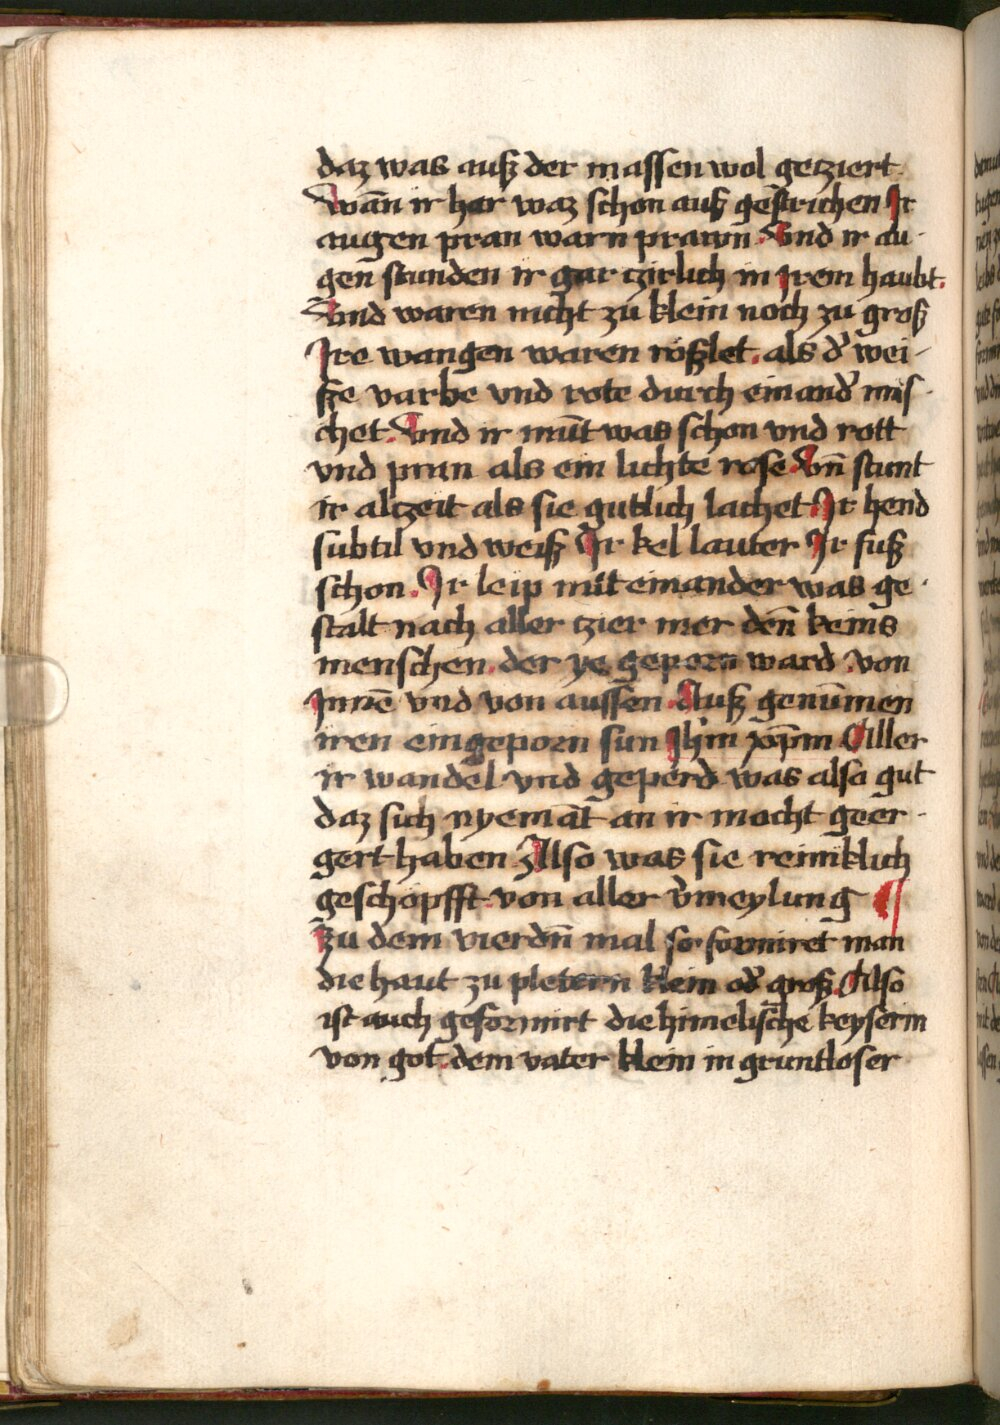 daz was auß der massen wol geziert
Wān ir har waz schon auß gestrichen Ir
augen pran warn prawn. Vnd ir au-
gen stunden ir gar zirlich in irem haubt.
Vnd waren nicht zu klein noch zu groß
Ire wangen waren rößlet. als d' wei-
ße varbe vnd rote durch einand' mis-
chet. Vnd ir mūt was schon vnd rott
vnd prun als ein lichte rose. Vn̄ stunt
ir alzeit als sie gutlich lachet. Ir hend
subtil vnd weiß Ir kel lauter Ir fuß
schon. Ir leip mit einander was ge-
stalt nach aller zier mer den̄ keins
menschen. der ye geporn ward von
Innē vnd von aussen. Auß genūmen
iren eingeporn sun Ihm xp̄m Aller
ir wandel vnd geperd was also gut
daz sich nyemāt an ir mocht geer-
gert haben Allso was sie reiniklich
geschöpfft. von aller v'meylung ¶
Zu dem vierdn̄ mal so formiret man
die haut zu pletern klein od' groß. Also
ist auch geformirt die himelische keyserin
von got. dem vater klein in gruntloser